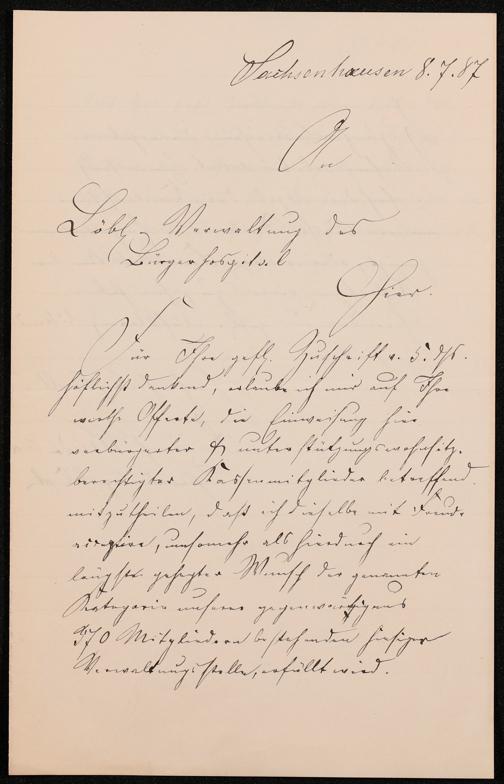 Sachsenhausen 8.7.87
An
Löbl. Verwaltung des
Bürgerhospital
Hier.
Für Ihre gefl. Zuschrift v. 5. dss.
höflichst dankend, erlaube ich mir auf Ihre
werthe Offerte, die Einweisung hier
verbürgerter & unterstützungswohnsitz-
berechtigter Kassenmitglieder betreffend
mitzutheilen, daß ich dieselbe mit Freude
acceptire, umsomehr als hierdurch ein
längst gehegter Wunsch der genannten
Kategorie unserer gegenwärtig aus
370 Mitgliedern bestehenden hiesigen
Verwaltungsstelle, erfüllt wird.